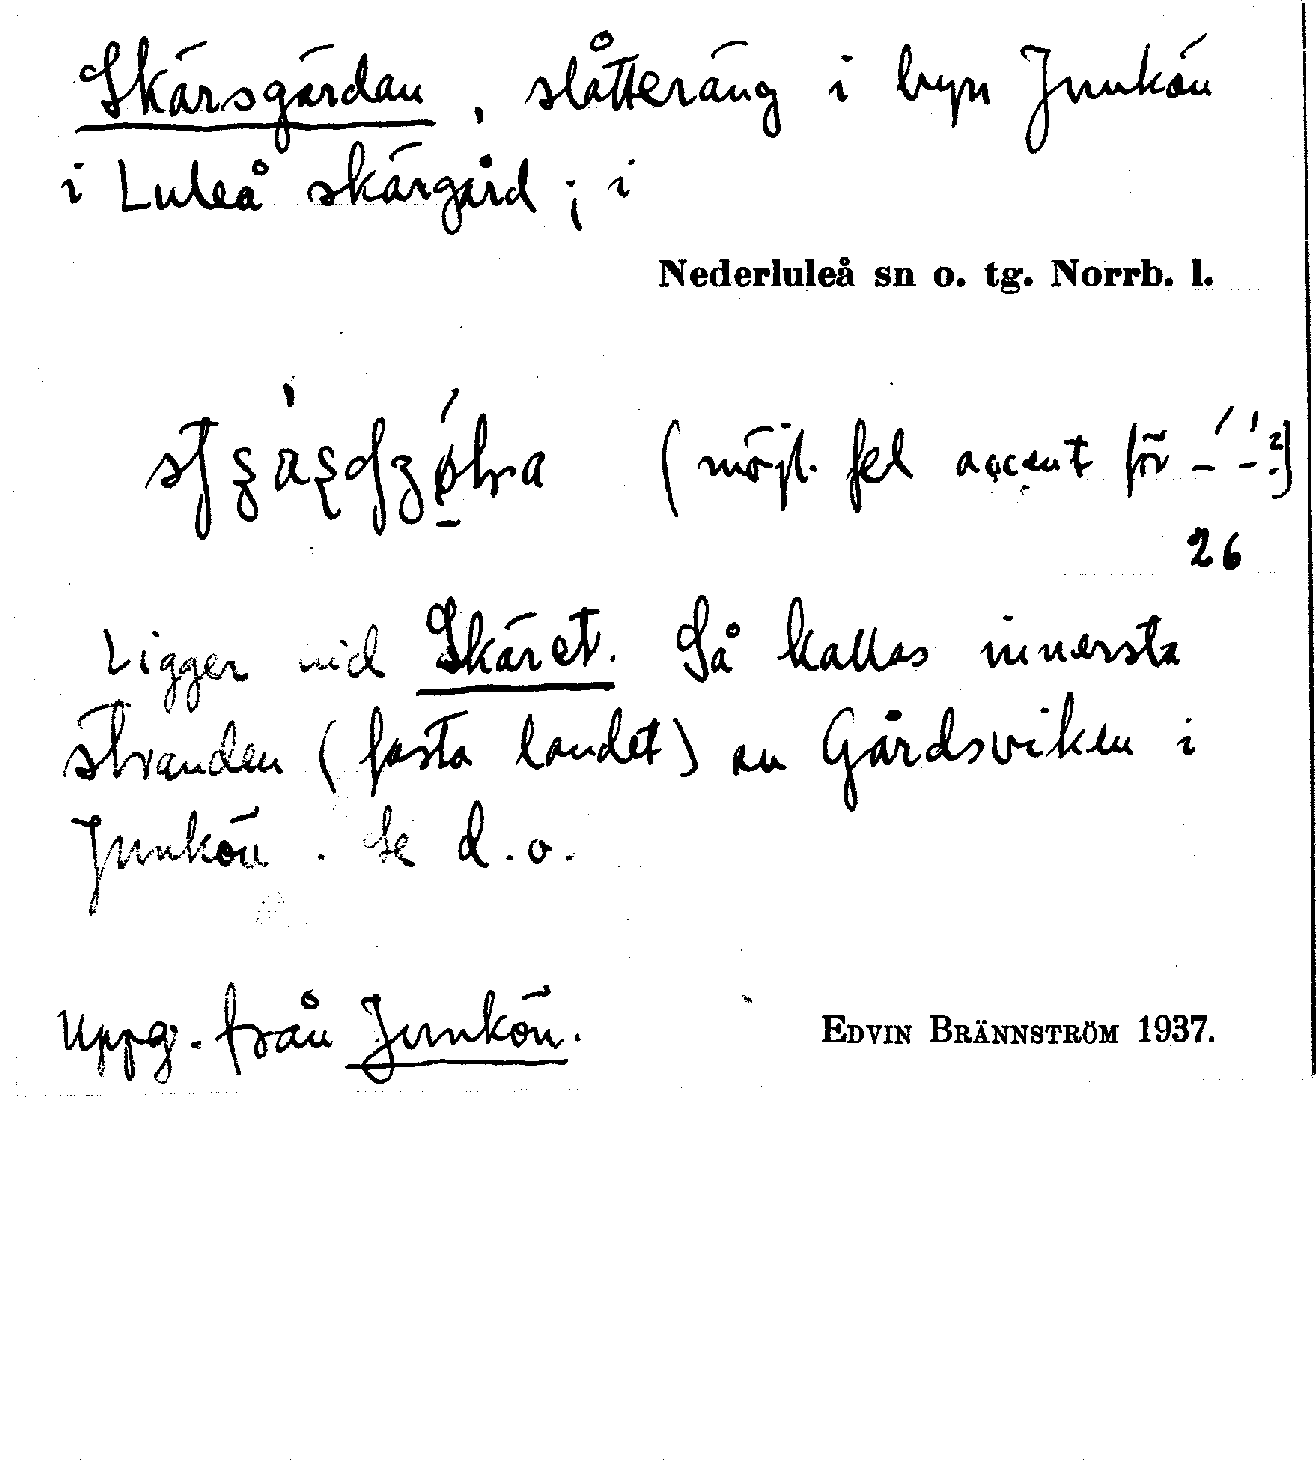 Skärsgärdan, slåtteräng i byn Junkön
i Luleå skärgård; i
Nederluleå sn o. tg. Norrb. l.
(möjl. fel accent för
26
Ligger vid Skäret. Så kallas innersta
stranden (fasta landet) av Gårdsviken i
Junkön. Se d.o.
Uppg. från Junkön.
EDVIN BRÄNNSTRÖM 1937.